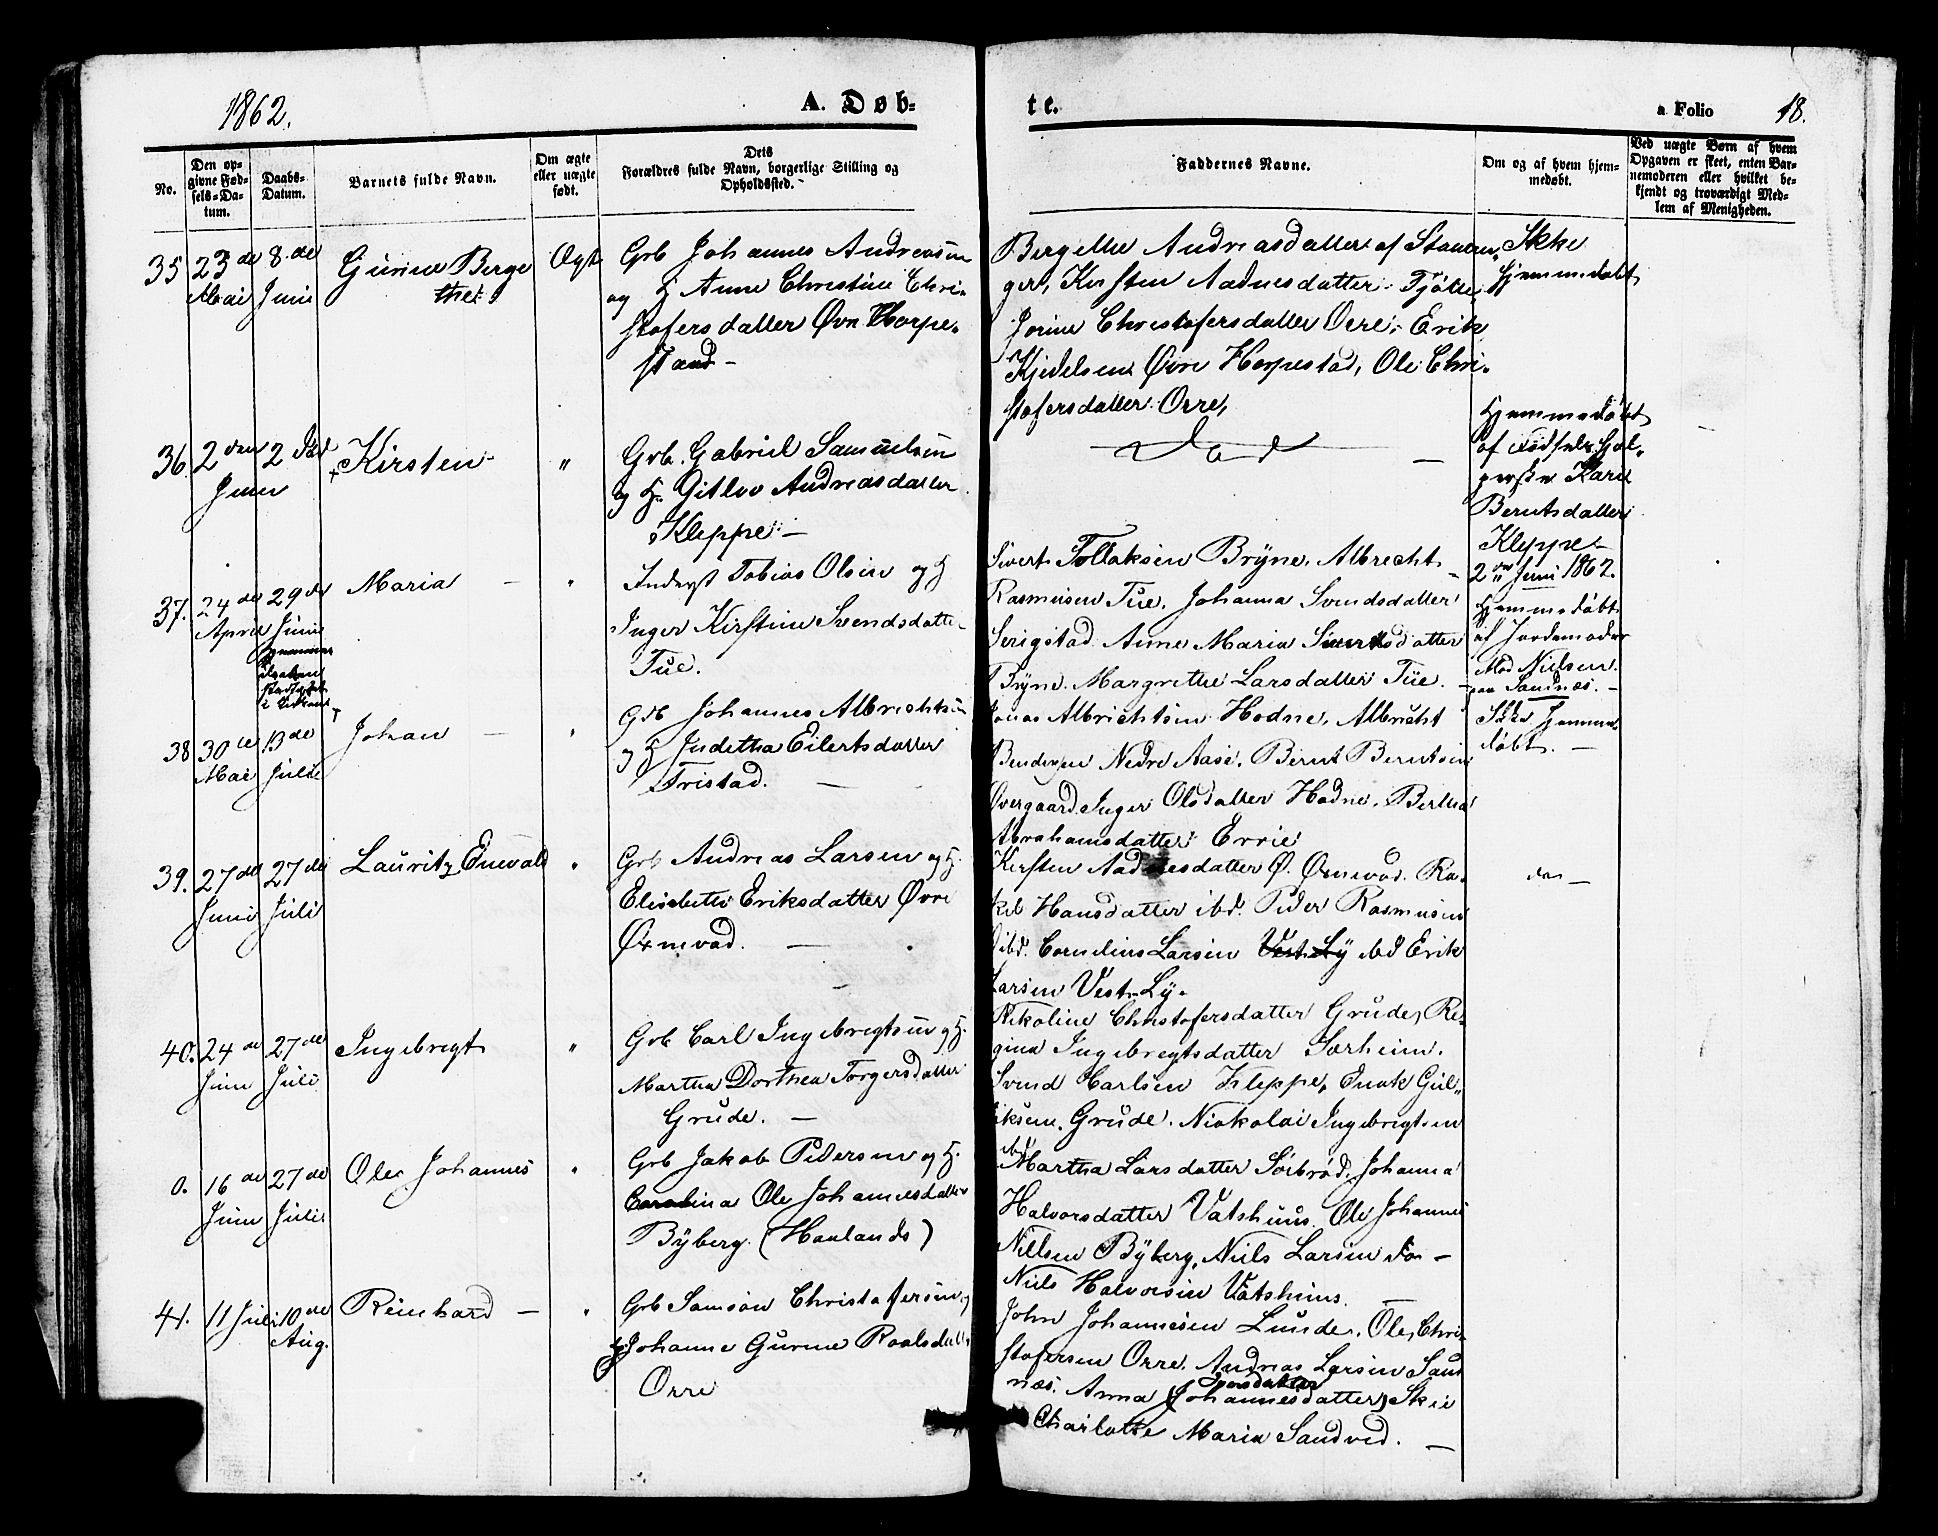 1862.
A. Døb-
te.
a Folio
18.
No.
Den op-
givne Fød-
sels-Da-
tum.
Daabs-
Datum.
Barnets fulde Navn.
Om ægte
eller uægte
født.
Dets
Forældres fulde Navn, borgerlige Stilling og
Opholdssted.
Faddernes Navne.
Om og af hvem hjem-
medøbt.
Ved uægte Børn af hvem
Opgaven er skeet, enten Bar-
nemoderen eller hvilket be-
kjendt og troværdigt Med-
lem af Menigheden.
35
23de
Mai
8de
Juni
Gurine Berge
the
Ægte
Grb Johannes Andreasen
og H Anne Christine Chri-
stofersdatter Øvr Horpe-
stad -
Bergette Andreasdatter af Stavan
ger, Kirsten Aadnesdatter Tjøtte
Jorine Christofersdatter Orre, Erik
Kjedelsen Øvre Horpestad, Ole Chri-
stofersdatter Orre,
Ikke
hjemmedøbt
36.
2den
Juni
2
Kirsten
"
Grb. Gabriel Samuelsen
og H. Gitlov Andreasdatter
Kleppe -
Død
Hjemmedøbt
af Fødselshjel-
persk Kari
Berntsdatter
Kleppe
2den Juni 1862.
37.
24de
April
29de
Juni
Maria -
"
Inderst Tobias Olsen og H
Inger Kirstine Svendsdatter
Tue.
Sivert Tollaksen Bryne, Albrecht
Rasmusen Tue, Johanna Svendsdatter
Serigstad Anne Maria Sivertsdatter
Bryne. Margrethe Larsdatter Tue. -
Hjemmedøbt
af Jordemoder
Mad Nielsen
paa Sandnæs. -
38
30te
Mai
13de
Juli
Johan -
"
Grb Johannes Albrechtsen
og H Judetha Eilertsdatter
Tristad. -
Jonas Albrichtsen Hodne, Albrecht
Bendixen Nedre Aase, Bernt Berntsen
Øvergaard Inger Olsdatter Hodne, Bertha
Abrahamsdatter Errie
Ikke hjemme
døbt. -
39.
27de
Juni
27de
Juli
Lauritz Enevald
"
Grb Andreas Larsen og H.
Elisabeth Eriksdatter Øvre
Øxnevad. -
Kirsten Aadnesdatter Ø. Øxnevad. Ra-
kel Hansdatter ibd. Peder Rasmusen
ibd. Cornelius Larsen Vest Ly ibd Erik
Larsen Vest-Ly.
do -
40.
24de
Juni
27de
Juli
Ingebregt
"
Grb Carl Ingebregtsen og H.
Martha Dorthea Torgersdatter
Grude. -
Nikoline Christofersdatter Grude, Re-
gina Ingebregtsdatter Sørheim.
Svend Carlsen Kleppe, Enok Gul-
iksen. Grude. Niokolai Ingebregtsen
ibd
0.
16de
Juni
27de
Juli
Ole Johannes
"
Grb Jakob Pedersen og H.
Carolina Ole Johannesdatter
Byberg. (Haalands)
Martha Larsdatter Sørbrød, Johanna
Halvorsdatter Vatshuus. Ole Johannes
Nillsen Byberg, Niels Larsen do -
Niels Halvorsen Vatshuus. -
41.
11 Juli
10de
Aug.
Reinhard -
"
Grb Samson Christofersen og
H. Johanne Gurine Roalsdatter
Orre
John Johannesen Lunde, Ole Chri-
stofersen Orre, Andreas Larsen Sand
næs. Anna (Johannesdatter) Skie
Charlotte Maria Sandved. -